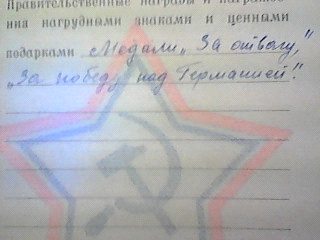 Правительственные награды и награжде-
ния нагрудными знаками и ценными
подарками Медали „За отвагу,"
„За победу над Германией".